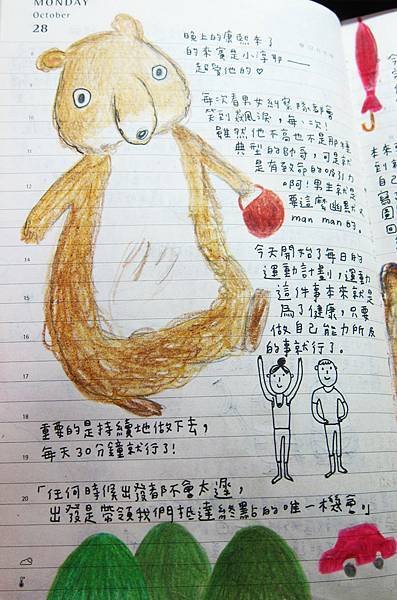 MONDAY
October
28
晚上的康熙來了
的來賓是小淳耶——
超愛他的♡
每次看男女糾察隊都會
笑到飆淚,每、次!
雖然他不高也不是那種
典型的帥哥,可是就
是有致命的吸引力
啊!男生就是
要這麼幽默又
man man的。
今天開始了每日的
運動計劃,運動
這件事本來就是
為了健康,只要
做自己能力所及
的事就行了。
重要的是持續地做下去,
每天30分鐘就行了!
「任何時候出發都不會太遲,
出發是帶領我們抵達終點的唯一機會」
8
9
10
11
12
13
14
15
16
17
18
19
20